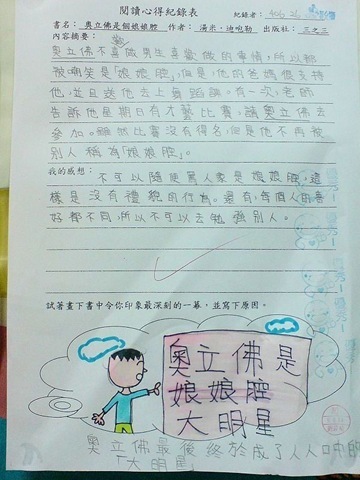 閱讀心得紀錄表
紀錄者：406 26
書名：奧立佛是個娘娘腔 作者：湯米．迪咆勒 出版社：三之三
內容摘要：
奧立佛不喜歡做男生喜歡做的事情，所以都
被嘲笑是「娘娘腔」，但是，他的爸媽很支持
他，並且送他去上舞蹈課。有一次，老師
告訴他星期日有才藝比賽，請奧立佛去
參加。雖然比賽沒有得名，但是他不再被
別人稱為「娘娘腔」。
我的感想：
不可以隨便罵人家是娘娘腔，這
樣是沒有禮貌的行為。還有，每個人的喜
好都不同，所以不可以去勉強別人。
試著畫下書中令你印象最深刻的一幕，並寫下原因。
奧立佛是
娘娘腔
大明星
奧立佛最後終於成了人人口中的
「大明星」